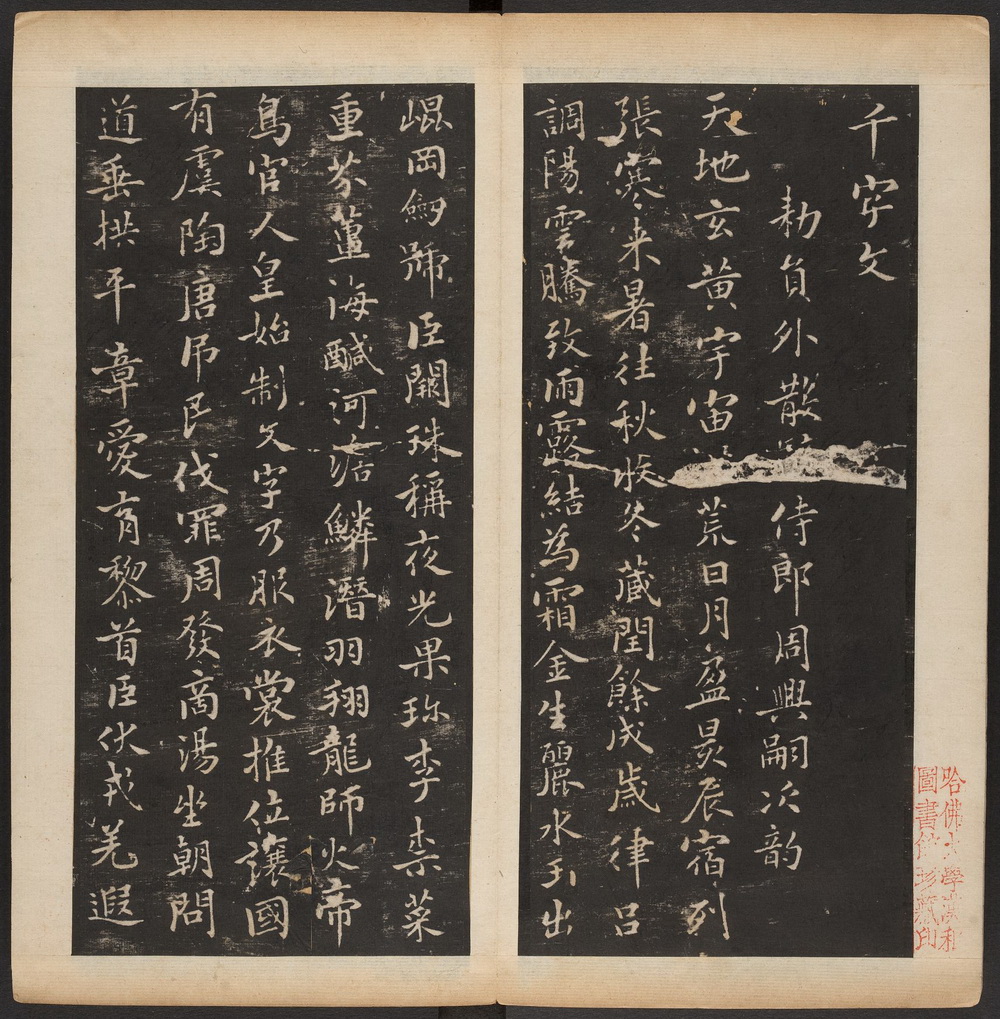 千字文
勅員外散騎侍郎周興嗣次韵
天地玄黄宇宙洪荒日月盈昃辰宿列
張寒来暑往秋收冬藏閏餘成歲律呂
調陽雲騰致雨露結為霜金生麗水玉出
崐岡劒號臣闕珠稱夜光果珎李柰菜
重芥薑海醎河淡鱗潛羽翔龍師火帝
鳥官人皇始制文字乃服衣裳推位讓國
有虞陶唐吊民伐罪周發商湯坐朝問
道垂拱平章愛育黎首臣伏戎羌遐
哈佛大學漢和
圖書館珍藏印